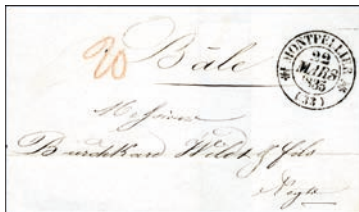 20
Bâle
MONTPELLIER
22
MARS
1835
(33)
Messieurs
Burckhard Wildt & fils
Negts